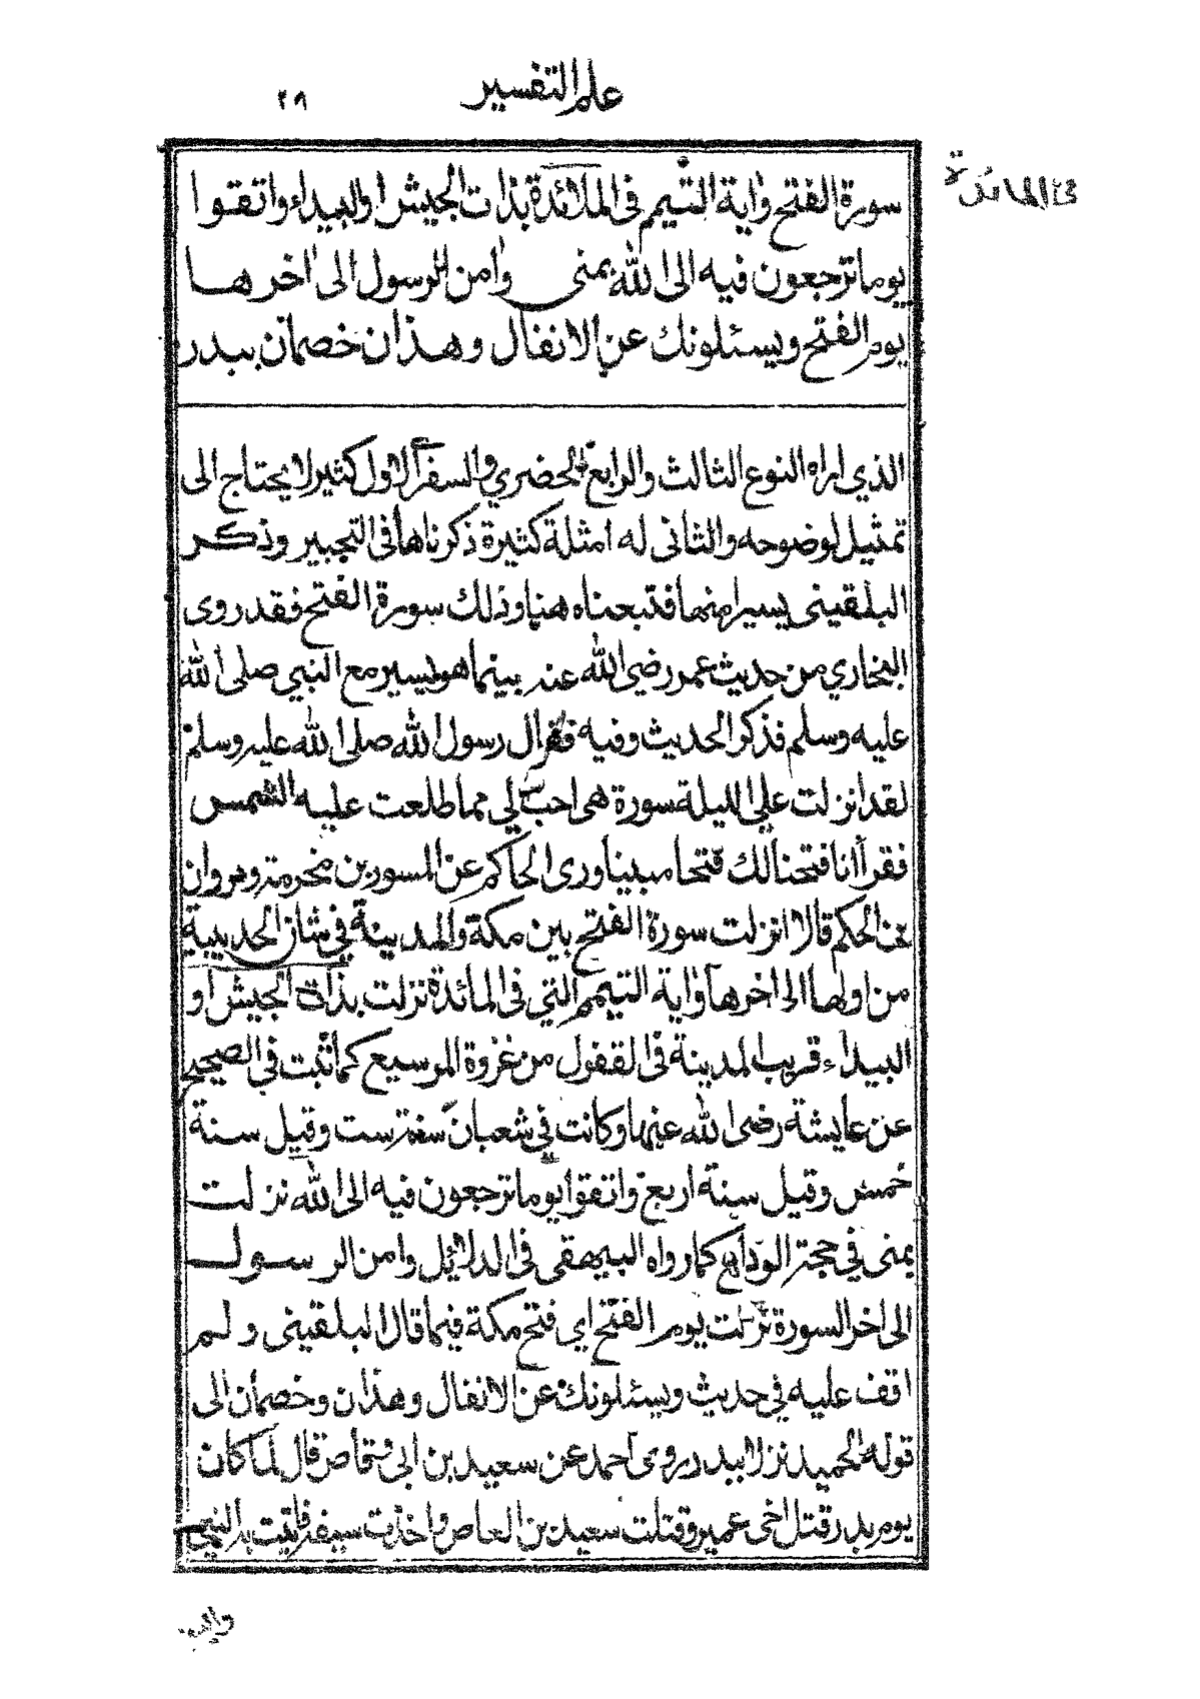 علم التفسير ٢٨
في المائدة
سورة الفتح واية التيمم في المائدة بذات الجيش او البيداء واتقوا
يوما ترجعون فيه الى الله بمنى وامن الرسول الى اخرها
يوم الفتح ويسئلونك عن الانفال وهذان خصمان ببدر
الذي اراه النوع الثالث والرابع الحضري والسفر الاول كثير لا يحتاج الى
تمثيل لوضوحه والثاني له امثلة كثيرة ذكرناها في التحبير وذكر
البلقيني يسيرا منها فتبعناه هنا وذلك سورة الفتح فقد روى
البخاري من حديث عمر رضي الله عنه بينما هو يسير مع النبي صلى الله
عليه وسلم فذكر الحديث وفيه فقال رسول الله صلى الله عليه وسلم
لقد انزلت علي الليلة سورة هي احب الي مما طلعت عليه الشمس
فقرأ انا فتحنا لك فتحا مبينا وروى الحاكم عن المسور بن مخرمة ومروان
بن الحكم قالا انزلت سورة الفتح بين مكة والمدينة في شان الحديبية
من اولها الى اخرها واية التيمم التي في المائدة نزلت بذات الجيش او
البيداء قريب المدينة في القفول من غزوة المريسيع كما ثبت في الصحيح
عن عايشة رضي الله عنها وكانت في شعبان سنة ست وقيل سنة
خمس وقيل سنة اربع واتقوا يوما ترجعون فيه الى الله نزلت
بمنى في حجة الوداع كما رواه البيهقي في الدلائل وامن الرسول
الى اخر السورة نزلت يوم الفتح اي فتح مكة فيما قال البلقيني ولم
اقف عليه في حديث ويسئلونك عن الانفال وهذان وخصمان الى
قوله الحميد نزلا ببدر روى احمد عن سعيد بن ابي وقاص قال لما كان
يوم بدر قتل اخي عمير وقتلت سعيد بن العاص واخذت سيفه فاتيت به النبي